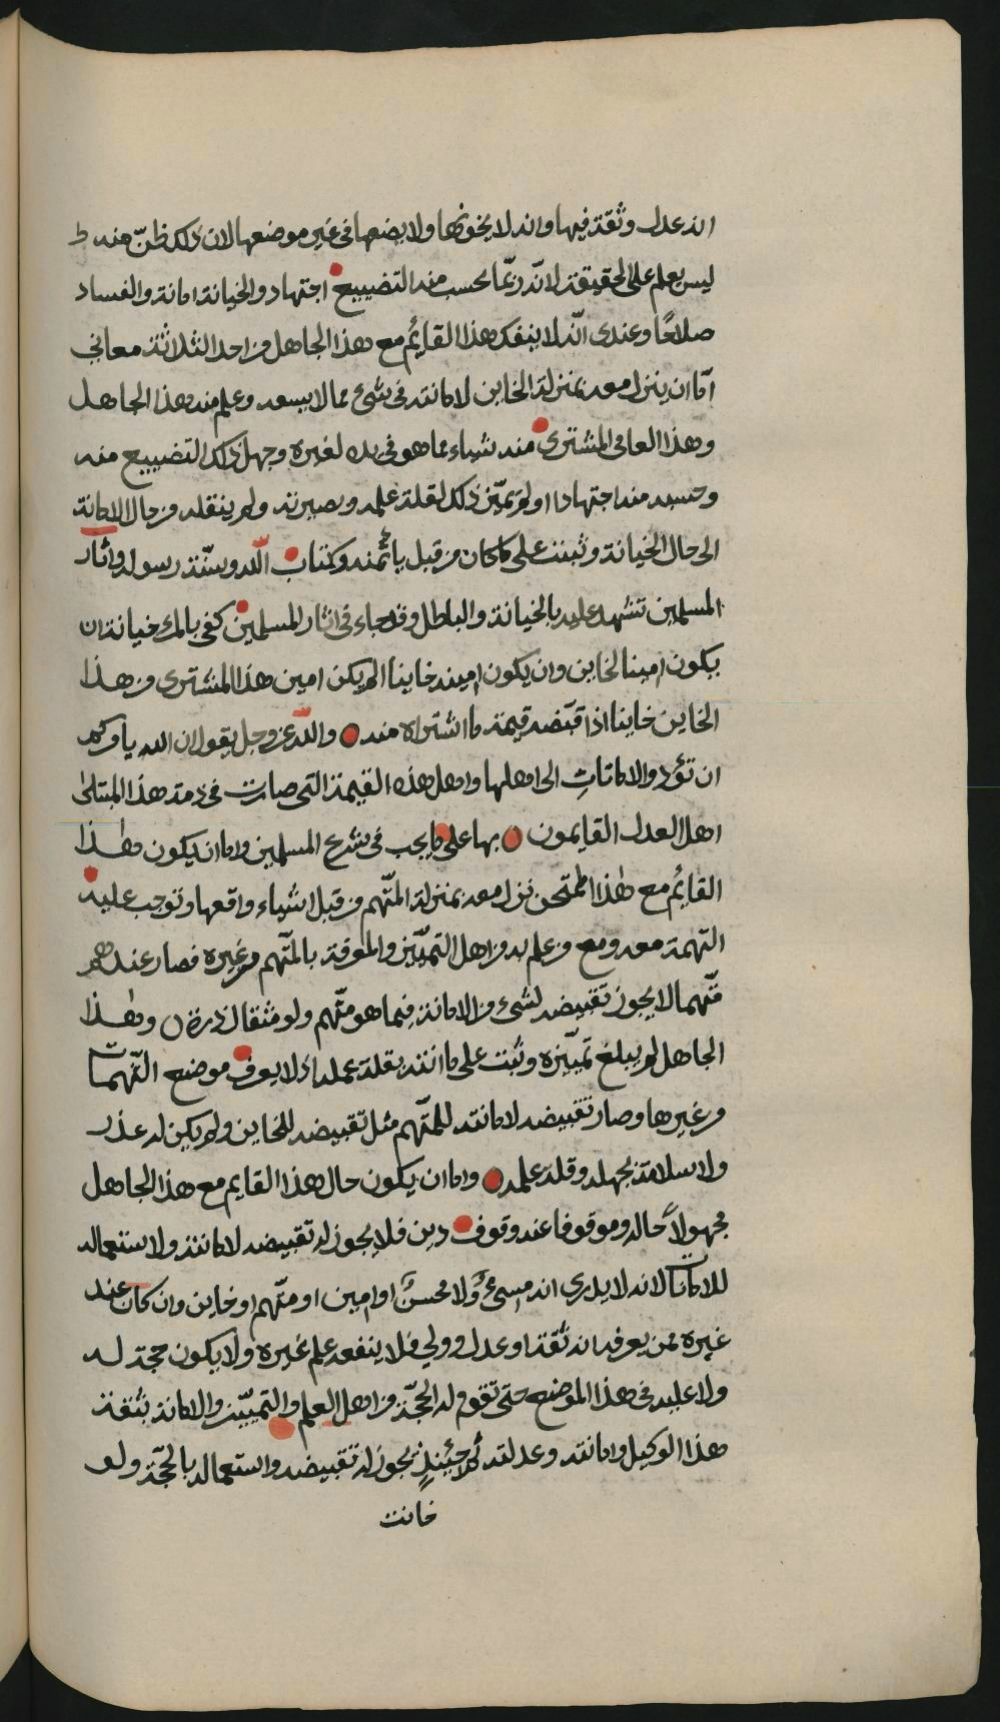 انه عدل وثقة فيها وانه لا يخونها ولا يضعها في غير موضعها لان ذلك ظنّ منه
ليس يعلم على الحقيقة لانّه ربّما يحسب منه التضييع اجتهاد والخيانة امانة والفساد
صلاحًا وعندى انّه لا ينفك هذا القايُم مع هذا الجاهل من احد الثلاثة معاني
امّا ان ينزل معه بمنزلة الخاين لامانته في شئ مما لا يسعه وعلم منه هذا الجاهل
وهذا العامي المشترى منه شياء مما هو في يده لغيره وجهل ذلك التضييع منه
وحسبه منه اجتهادا او لم يميّز ذلك لقلة علمه وبصيرته ولم ينقله من حال الامانة
الى حال الخيانة وثبت على ما كان من قبل ياتٔمنه وكتاب اللّه وسنّة رسوله واثار
المسلمين تشهد عليه بالخيانة والباطل وقد جاء في اثار المسلمين كفى بالمرء خيانة ان
يكون امينا لخاين وان يكون امينه خاينا الم يكن امين هذا المشترى من هذا
الخاين خاينا اذا قبّضه قيمة ما اشتراه منه واللّه عز وجل يقول ان الله يامركم
ان تؤدوا الامانات الى اهلها واهل هذه القيمة التي صارت في ذمة هذا المبتلى
اهل العدل القايمون بها على ما يجب في شرع المسلمين واما ان يكون هذا
القايُم مع هذا الممتحن نزل معه بمنزلة المتّهم من قبل اشياء واقعها وتوجب عليه
التهمة معه ومع من علم به من اهل التمييز والمعرفة بالمتّهم من غيره فصار عندهم
متّهما لا يجوز تقبيضه لشئ من الامانة فيما هو متّهم ولو مثقال ذرة وهذا
الجاهل لم يبلغ تمييزه وثبت على ما ائتنه بقلة عمله اذ لا يعرف موضع التّهمات
من غيرها وصار تقبيضه لامانته للمتّهم مثل تقبيضه للخاين ولم يكن له عذر
ولا سلامة بجهله وقلة علمه واما ان يكون حال هذا القايم مع هذا الجاهل
مجهولاً حاله وموقوفا عند وقوف دين فلا يجوز له تقبيضه لامانته ولا استعماله
للامانات لانه لا يدرى انه مسئٌ ولا محسنٌ او امين او متّهم او خاين وان كان عند
غيره ممن يعرفه انه ثقة او عدل وولي فلا ينفعه علم غيره ولا يكون حجة له
ولا عليه في هذا الموضع حتى تقوم له الحجّة من اهل العلم والتمييز والامانة بثقة
هذا الوكيل وامانته وعدلته حينيذٍ يجوز له تقبيضه واستعماله بالحجّة ولو
خانت